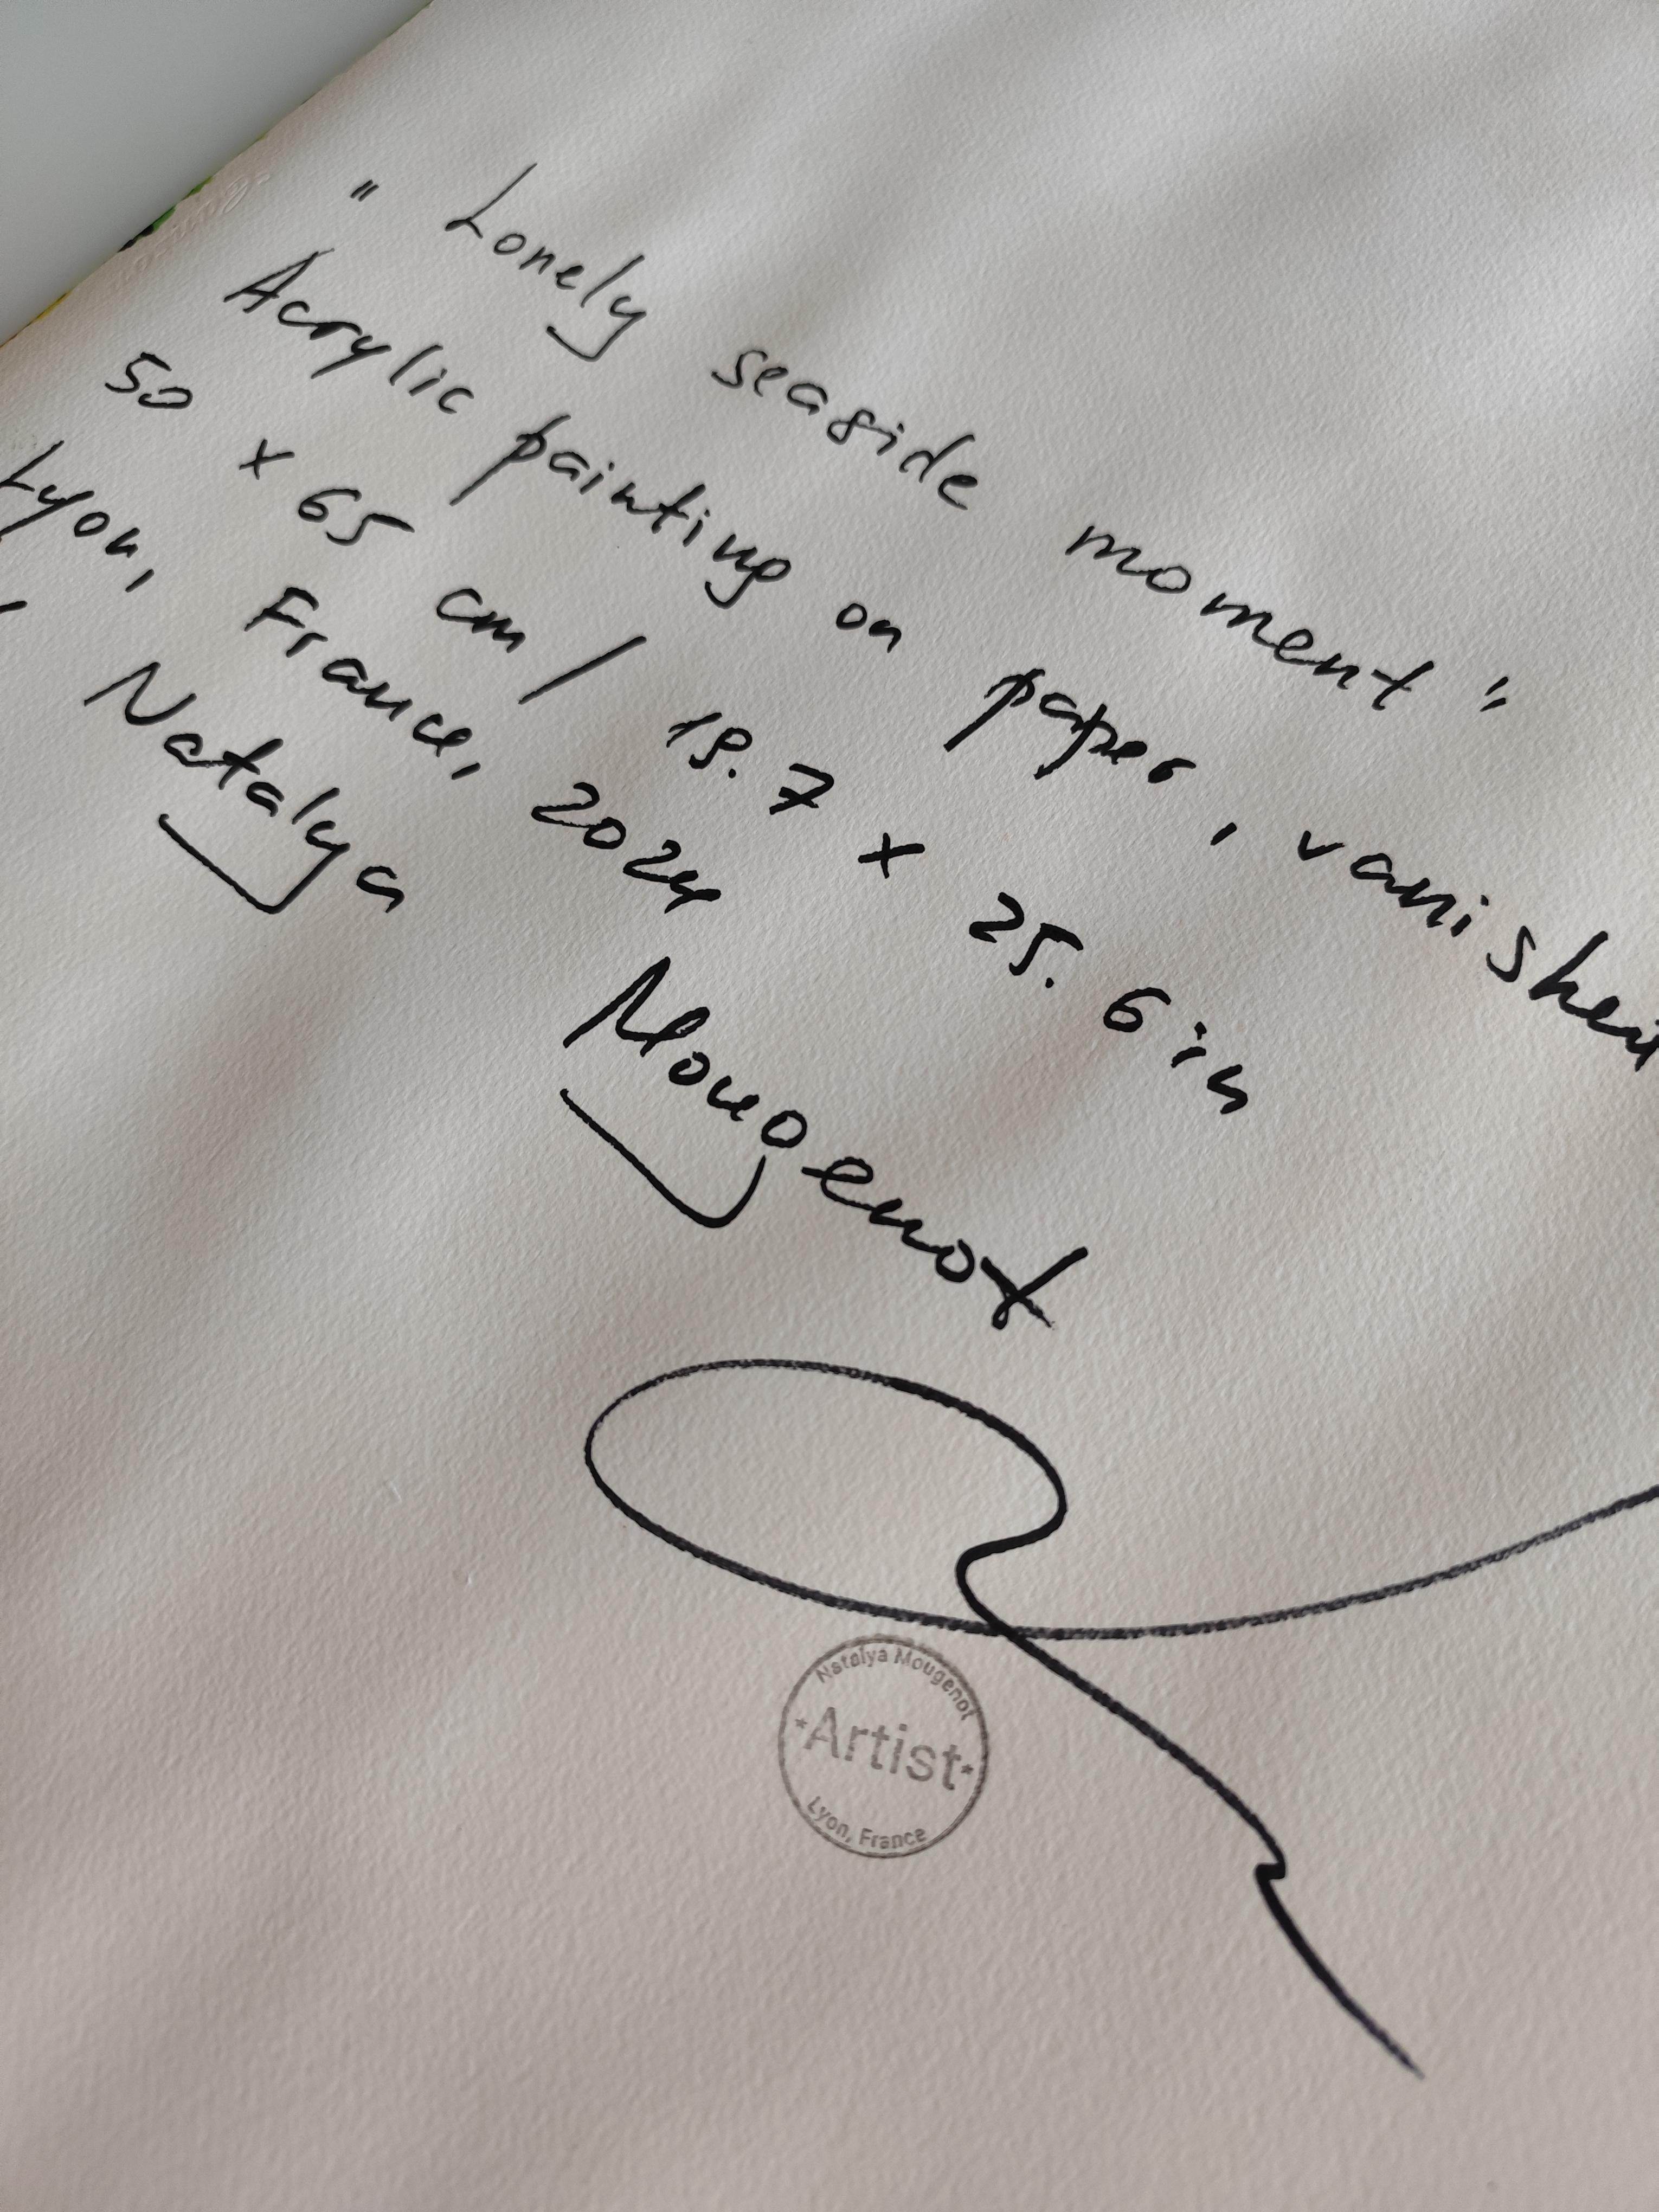 " Lonely seaside moment "
Acrylic painting on paper, vanished
50 x 65 cm / 19.7 x 25.6 in
Lyon, France, 2024
Natalya Mougenot
Natalya Mougenot
*Artist*
Lyon, France